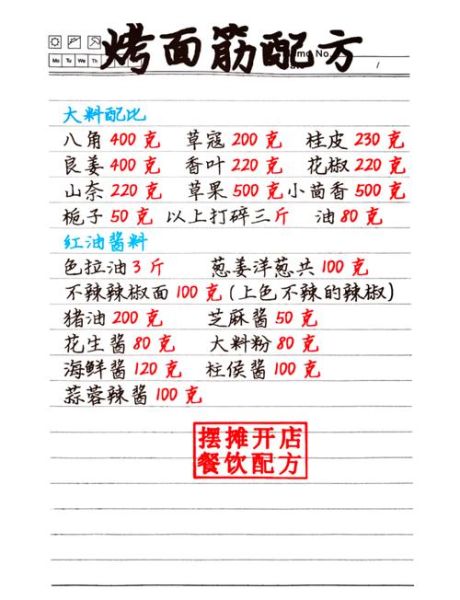 烤面筋配方
Mo Tu We Th
Memo No.
/
大料配比
八角 400 克 草寇 200 克 桂皮 230 克
良姜 400 克 香叶 220 克 花椒 220 克
山奈 220 克 草果 500 克 小茴香 500 克
栀子 50 克 以上打碎三斤 油 80 克
红油酱料
色拉油 3 斤 葱姜洋葱共 100 克
不辣辣椒面 100 克 (上色不辣的辣椒)
猪油 200 克 芝麻酱 50 克
花生酱 80 克 大料粉 80 克
海鲜酱 120 克 柱侯酱 100 克
蒜蓉辣酱 100 克
摆摊开店
餐饮配方